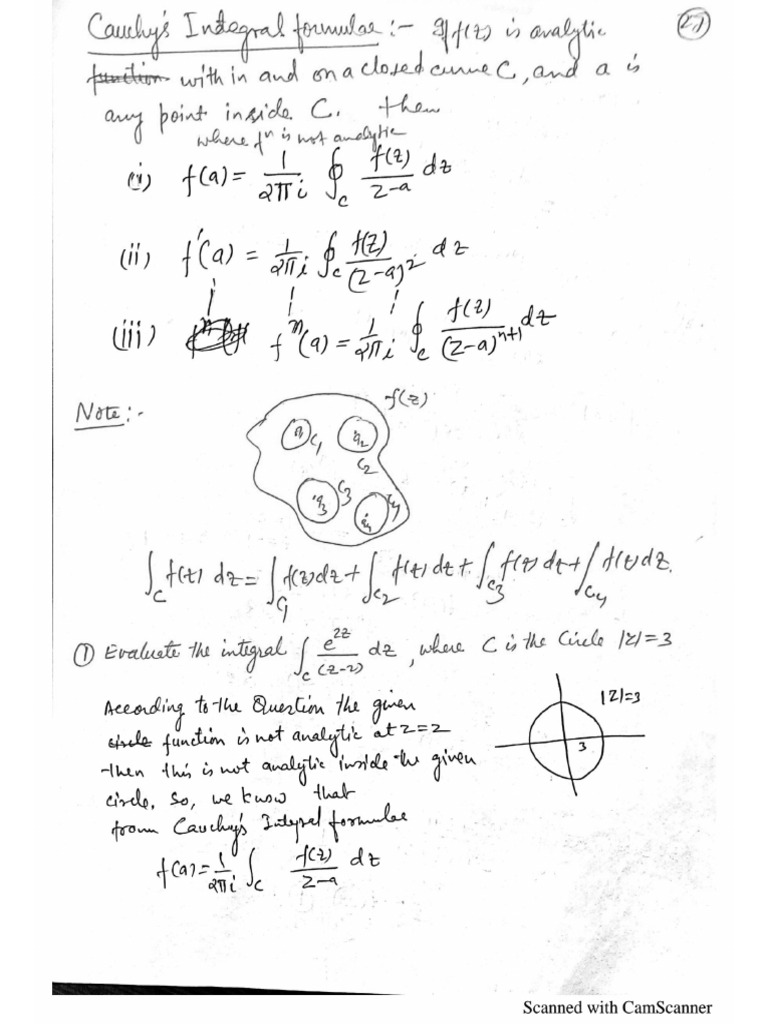 Cauchy's Integral formulae :- If f(z) is analytic
(21)
function with in and on a closed curve C, and a is
any point inside C. then
where fⁿ is not analytic
(i) f(a) = 1/2πi ∮_C f(z)/z-a dz
(ii) f'(a) = 1/2πi ∮_C f(z)/(z-a)² dz
(iii) fⁿ(a) = 1/2πi ∮_C f(z)/(z-a)ⁿ⁺¹ dz
Note :-
f(z)
C₁
C₂
C₃
C₄
∫_C f(z) dz = ∫_C₁ f(z) dz + ∫_C₂ f(z) dz + ∫_C₃ f(z) dz + ∫_C₄ f(z) dz.
① Evaluate the integral ∫_C e^2z/(z-2) dz, where C is the Circle |z|=3
According to the Question the given
circle function is not analytic at z=2
then this is not analytic inside the given
circle. So, we know that
from Cauchy's Integral formulae
f(a) = 1/2πi ∫_C f(z)/z-a dz
|z|=3
3
Scanned with CamScanner